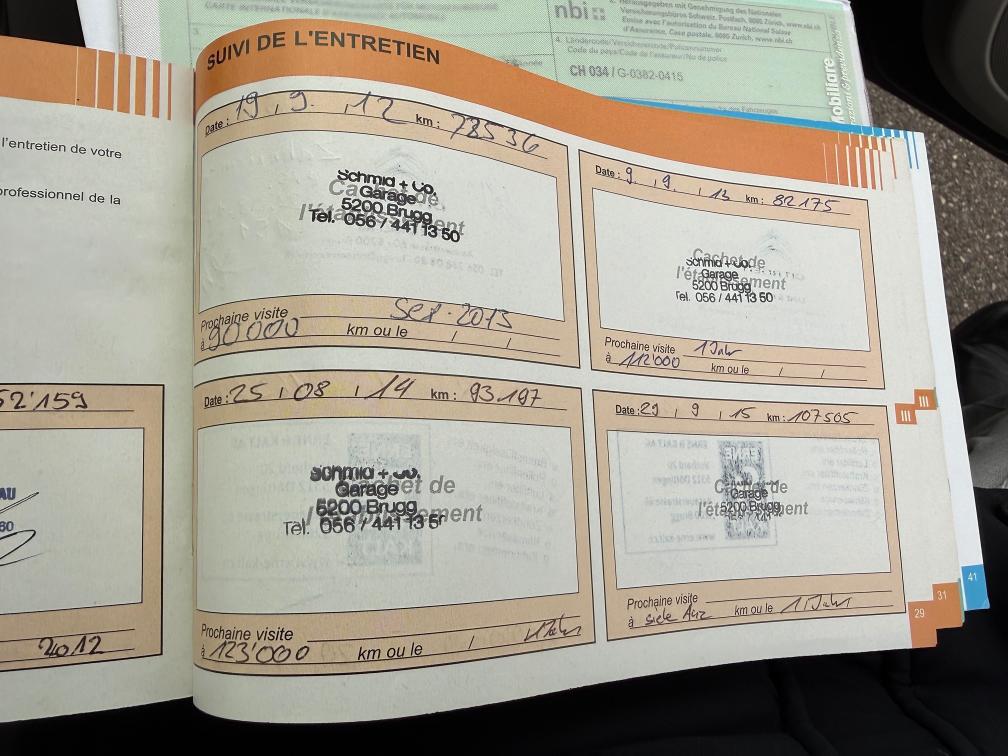 nbi
Herausgegeben mit Genehmigung des Nationalen
Versicherungsbüros Schweiz, Postfach, 8085 Zürich, www.nbi.ch
Emise avec l'autorisation du Bureau National Suisse
d'Assurance, Case postale, 8085 Zurich, www.nbi.ch
CH 034 / G-0382-0415
l'entretien de votre
professionnel de la
52'159
AU
60
2012
SUIVI DE L'ENTRETIEN
Date : 19 . 9 . 12 km : 78536
Cachet de
l'établissement
Schmid + Co.
Garage
5200 Brugg
Tel. 056 / 441 13 50
Prochaine visite
à 90'000 km ou le Sep. 2013 / /
Date : 9 . 9 . 13 km : 82175
Cachet de
l'établissement
Schmid + Co.
Garage
5200 Brugg
Tel. 056 / 441 13 50
Prochaine visite 1 Jahr
à 112'000 km ou le / /
Date : 25 . 08 . 14 km : 93.197
Cachet de
l'établissement
Schmid + Co.
Garage
5200 Brugg
Tel. 056 / 441 13 5
Prochaine visite
à 123'000 km ou le / 1 Jahr
Date : 29 . 9 . 15 km : 107505
Cachet de
l'établissement
Garage
5200 Brugg
Prochaine visite
à siehe km ou le 1 Jahr
III
III
29
31
41